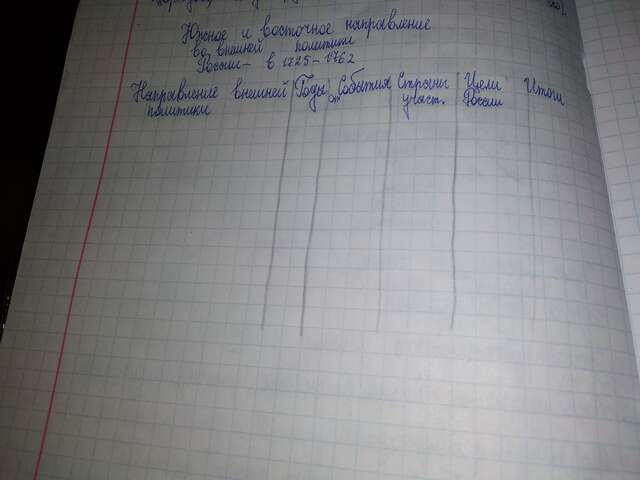 Южное и восточное направление
во внешней политики
России - в 1725-1762
Направление внешней политики
Годы
События
Страны участ.
Цели России
Итоги